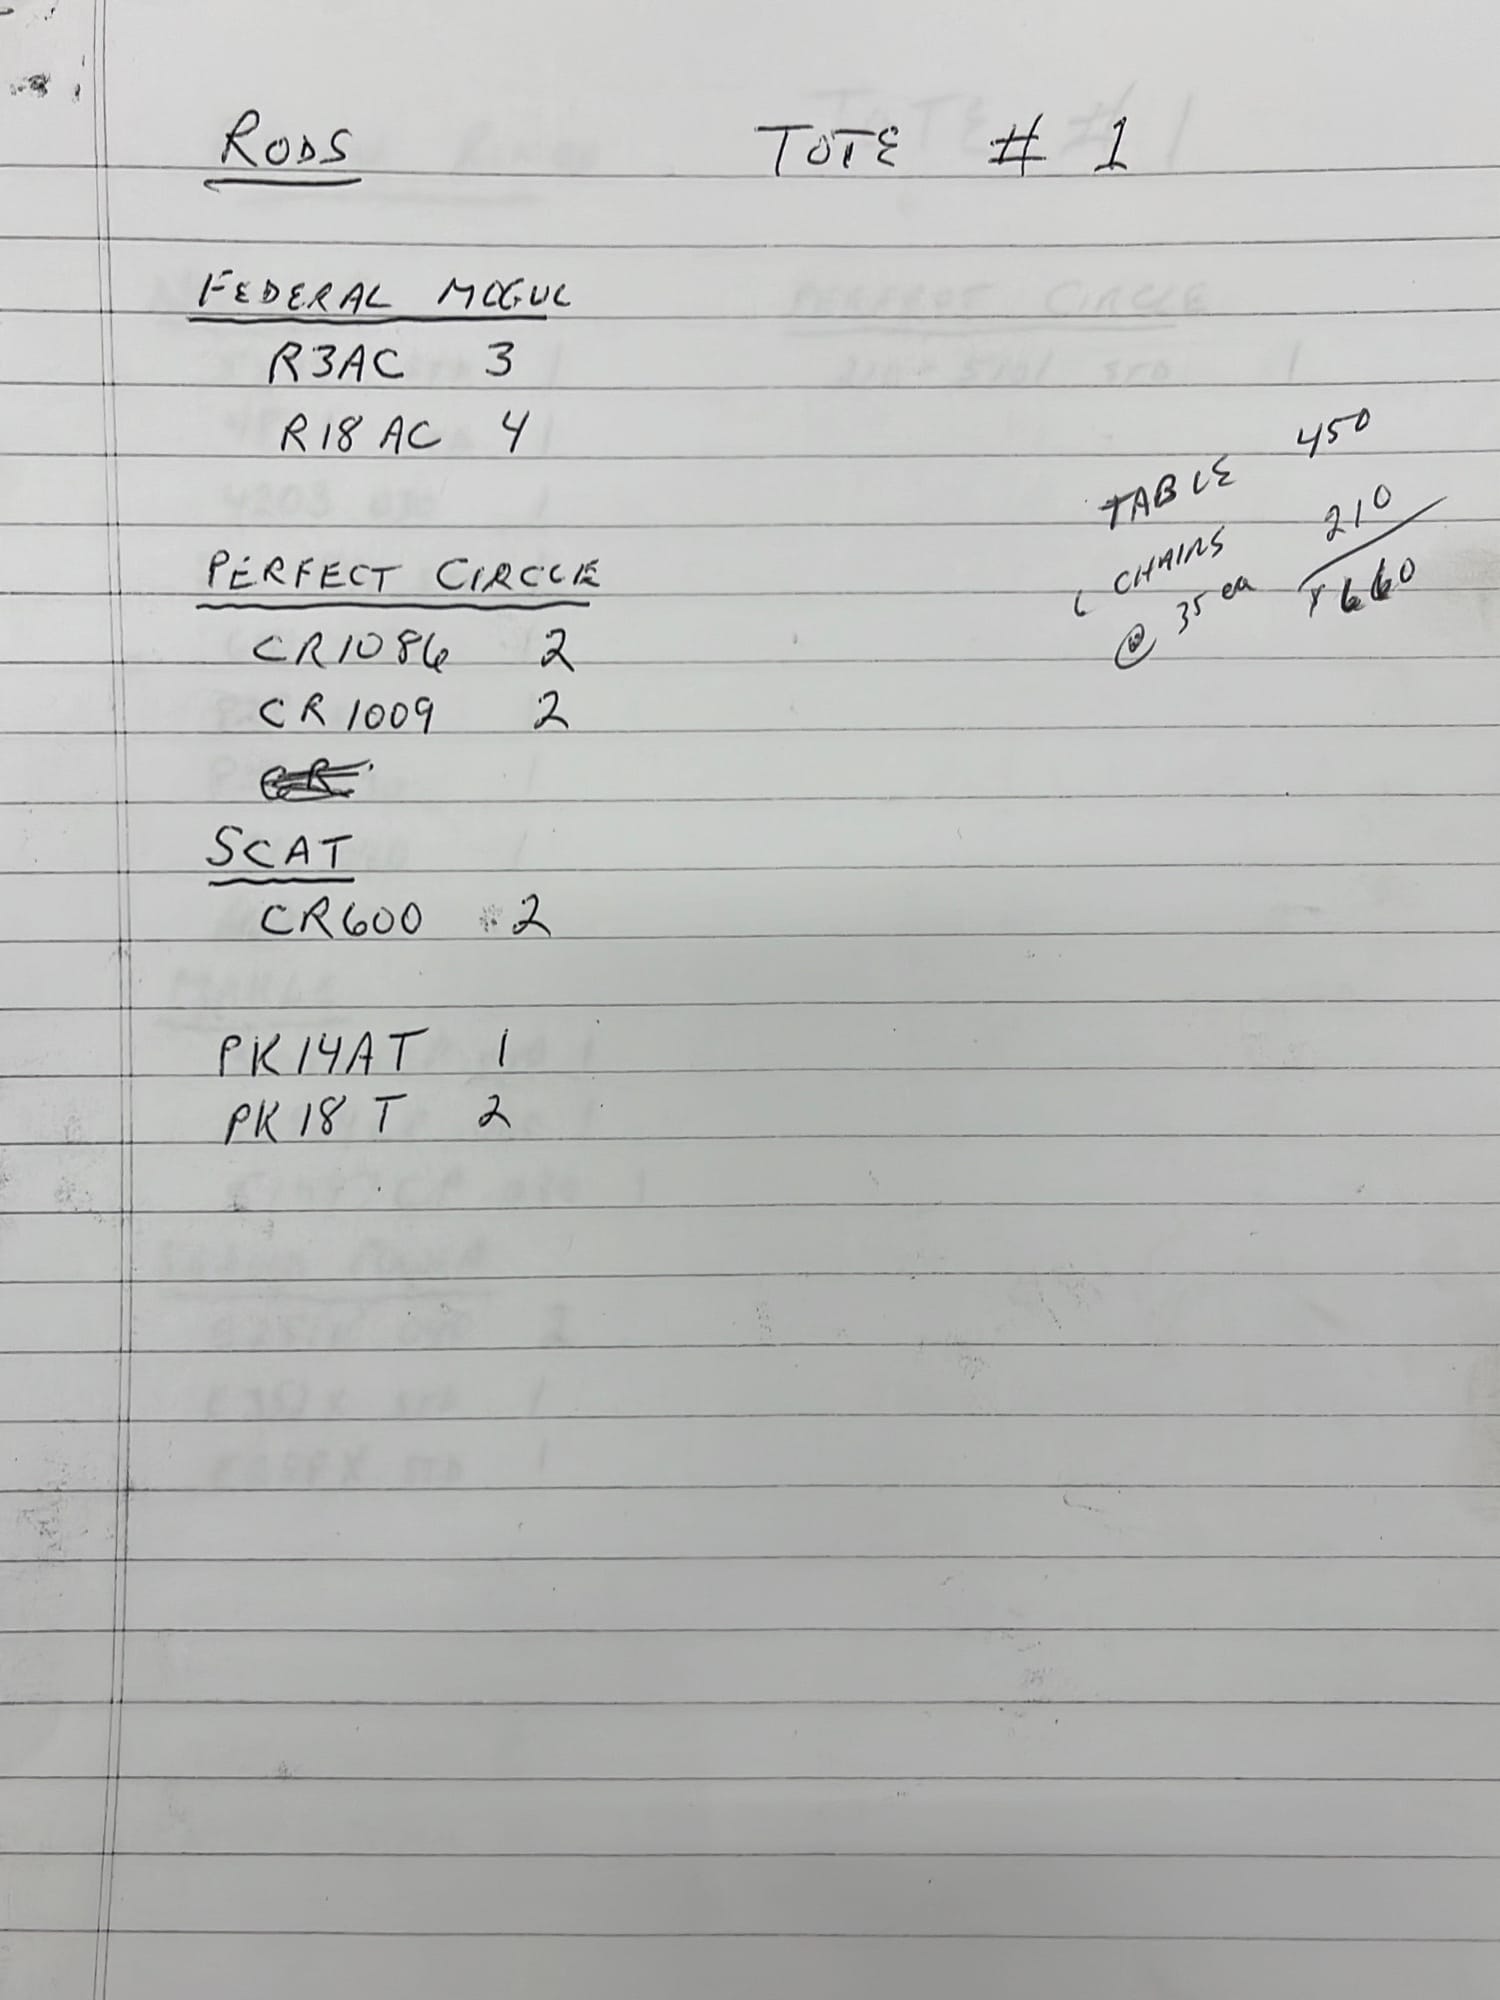 RODS TOTE # 1
FEDERAL MOGUL
R3AC 3
R18AC 4
PERFECT CIRCLE
CR1086 2
CR1009 2
SCAT
CR600 2
PK14AT 1
PK18T 2
TABLE 450
6 CHAIRS 210
@ 35 ea $660